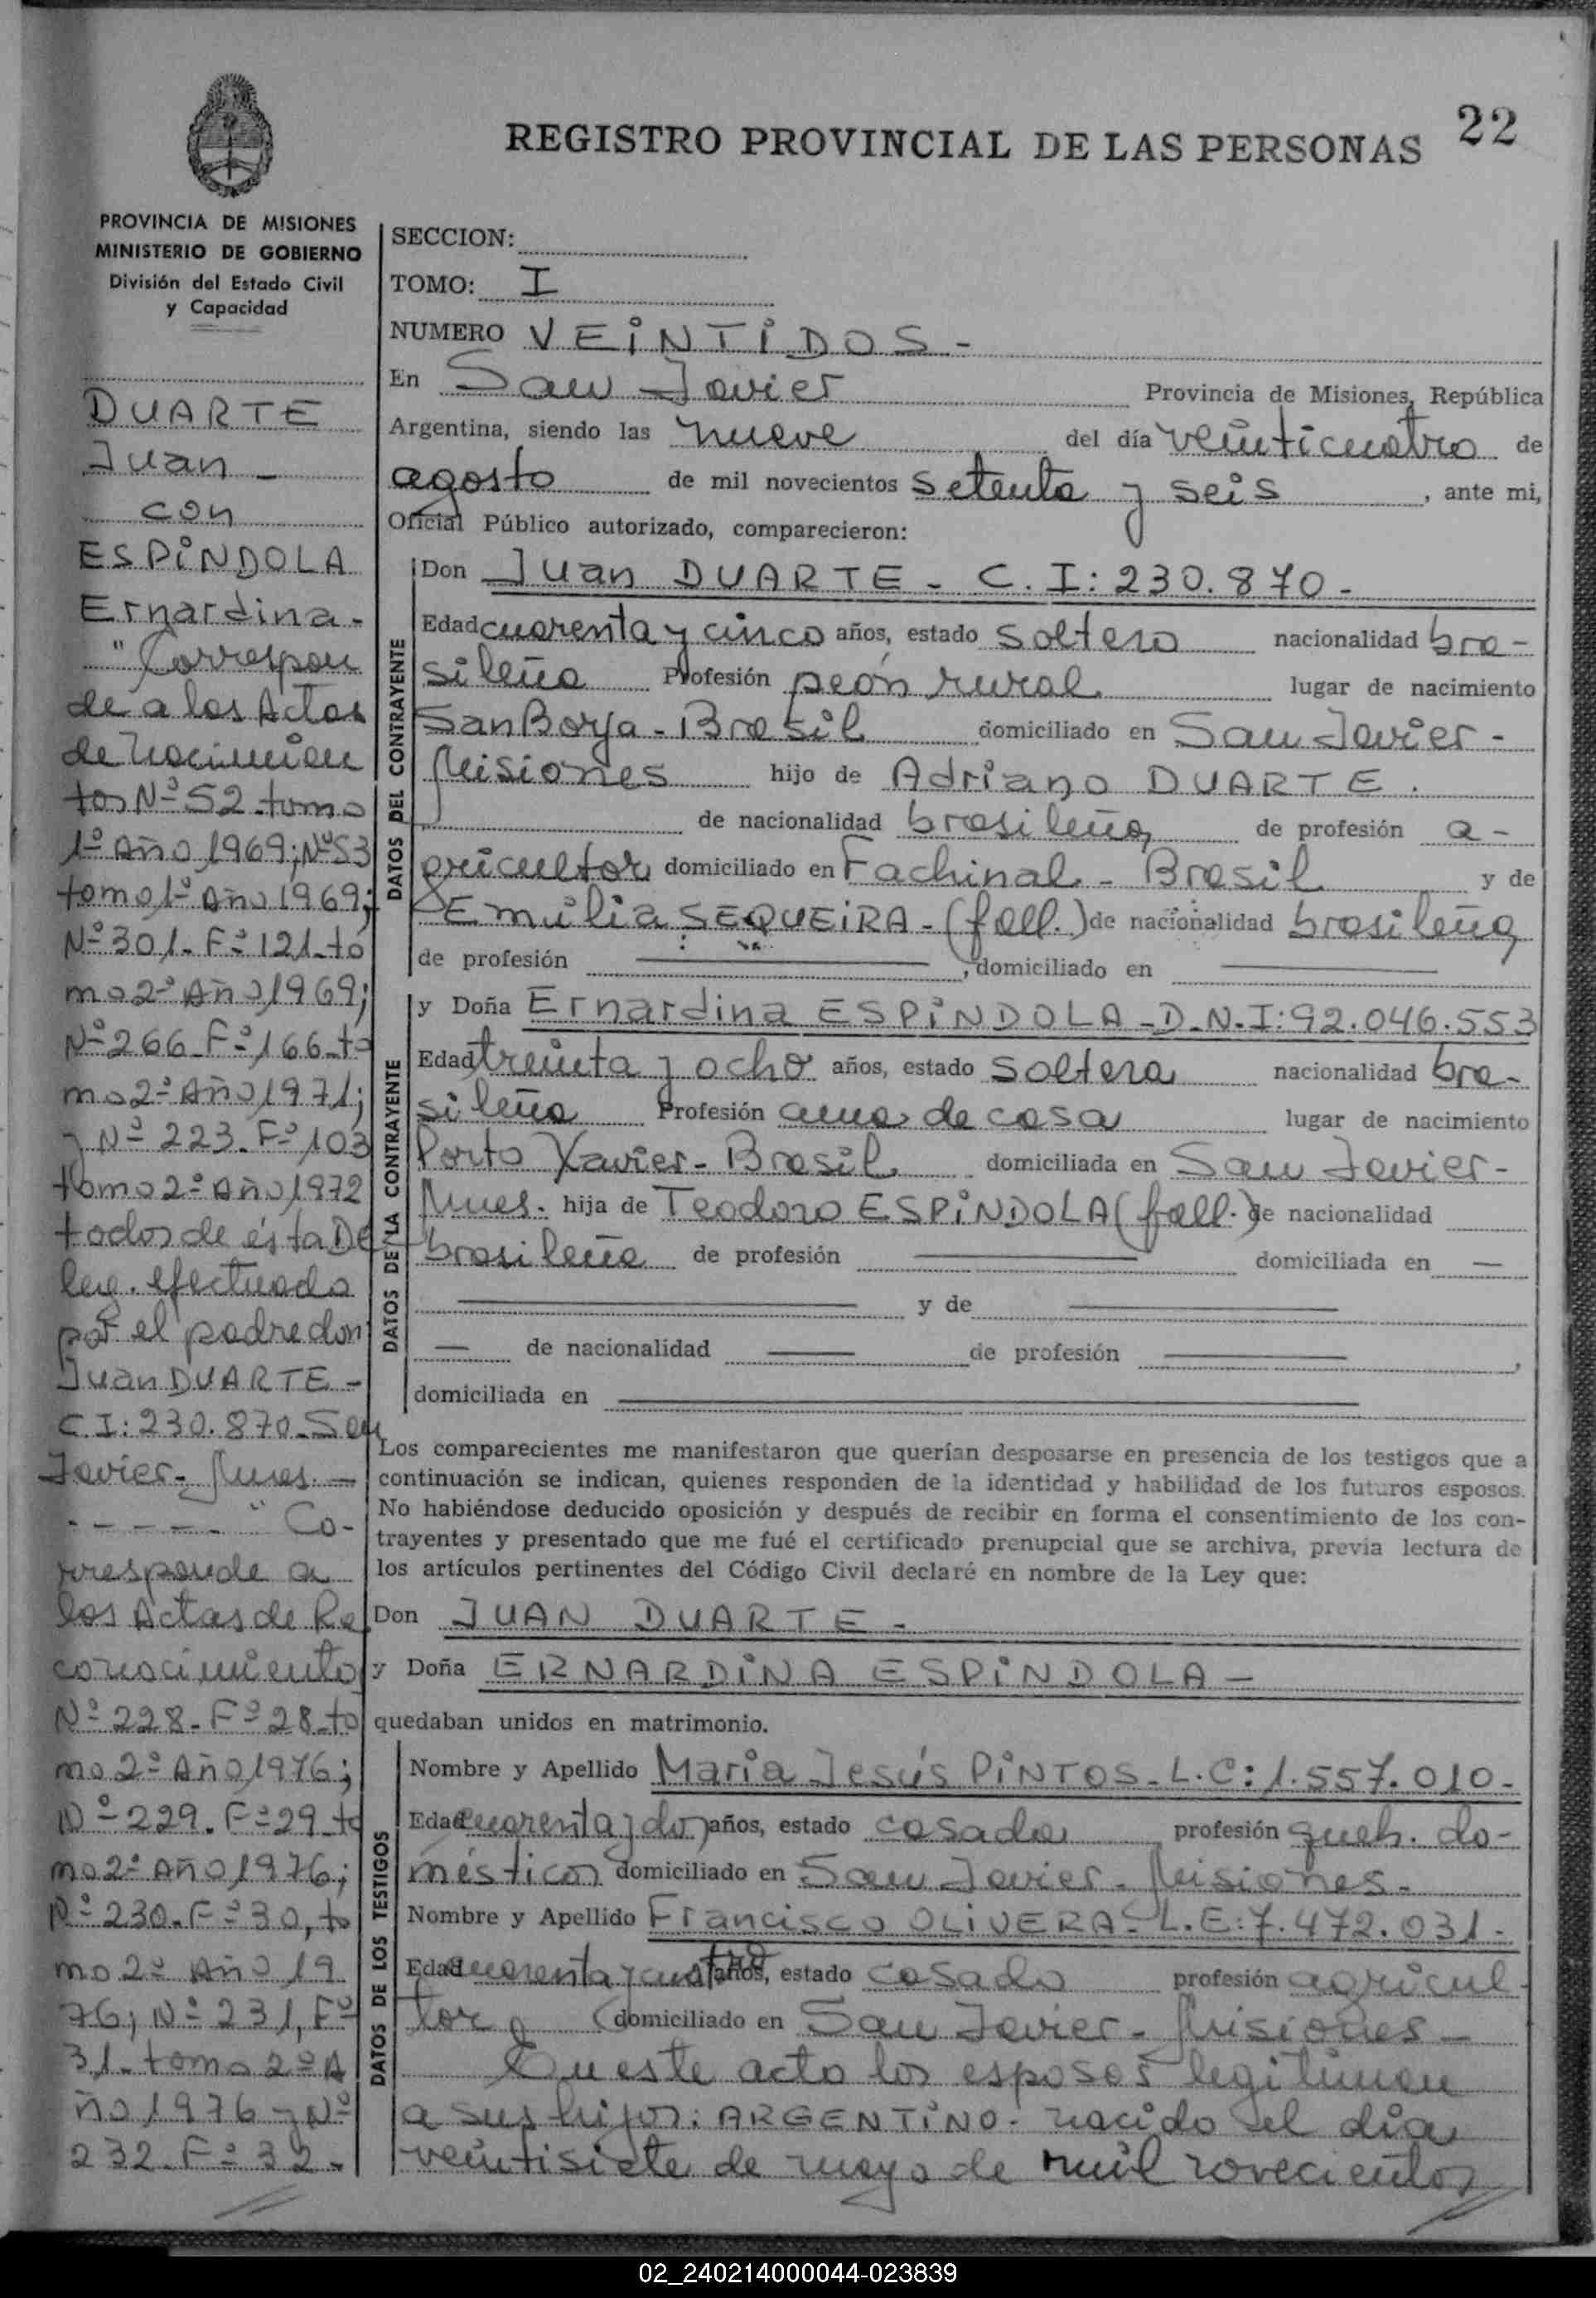 22
REGISTRO PROVINCIAL DE LAS PERSONAS
PROVINCIA DE MISIONES
MINISTERIO DE GOBIERNO
División del Estado Civil
y Capacidad
DUARTE
Juan -
con
ESPINDOLA
Ernardina -
"Correspon
de a las Actas
de Nacimien
tos Nº 52 tomo
1º Año 1969; Nº 53
tomo 1º Año 1969;
Nº 301. Fº 121 to
mo 2º Año 1969;
Nº 266 Fº 166 to
mo 2º Año 1971;
y Nº 223. Fº 103
tomo 2º Año 1972
todos de ésta De
leg. efectuado
por el padre don
Juan DUARTE -
C.I: 230.870. San
Javier - Mnes. -
- - - - - " Co-
rresponde a
los Actas de Re
conocimiento
Nº 228. Fº 28 to
mo 2º Año 1976;
Nº 229. Fº 29 to
mo 2º Año 1976;
Nº 230. Fº 30, to
mo 2º Año 19
76; Nº 231, Fº
31. tomo 2º A
ño 1976 y Nº
232. Fº 32.
SECCION:
TOMO: I
NUMERO VEINTIDOS -
En San Javier Provincia de Misiones, República
Argentina, siendo las nueve del día veinticuatro de
agosto de mil novecientos setenta y seis, ante mi,
Oficial Público autorizado, comparecieron:
DATOS DEL CONTRAYENTE
Don Juan DUARTE - C.I: 230.870 -
Edad cuarenta y cinco años, estado soltero nacionalidad bra-
sileña Profesión peón rural lugar de nacimiento
San Borja - Brasil domiciliado en San Javier -
Misiones hijo de Adriano DUARTE.
de nacionalidad brasileña de profesión a-
gricultor domiciliado en Fachinal - Brasil y de
Emilia SEQUEIRA - (fall.) de nacionalidad brasileña
de profesión , domiciliado en
DATOS DE LA CONTRAYENTE
y Doña Ernardina ESPINDOLA - D.N.I: 92.046.553
Edad treinta y ocho años, estado soltera nacionalidad bra-
sileña Profesión ama de casa lugar de nacimiento
Porto Xavier - Brasil domiciliada en San Javier -
Mnes. hija de Teodoro ESPINDOLA (fall.) de nacionalidad
brasileña de profesión domiciliada en
y de
de nacionalidad de profesión ,
domiciliada en
Los comparecientes me manifestaron que querían desposarse en presencia de los testigos que a
continuación se indican, quienes responden de la identidad y habilidad de los futuros esposos.
No habiéndose deducido oposición y después de recibir en forma el consentimiento de los con-
trayentes y presentado que me fué el certificado prenupcial que se archiva, previa lectura de
los artículos pertinentes del Código Civil declaré en nombre de la Ley que:
Don JUAN DUARTE -
y Doña ERNARDINA ESPINDOLA -
quedaban unidos en matrimonio.
DATOS DE LOS TESTIGOS
Nombre y Apellido María Jesús PINTOS - L.C: 1.557.010 -
Edad cuarenta y dos años, estado casada profesión queh. do-
mésticos domiciliado en San Javier - Misiones -
Nombre y Apellido Francisco OLIVERA - L.E: 7.472.031 -
Edad cuarenta y cuatro años, estado casado profesión agricul-
tor domiciliado en San Javier - Misiones -
En este acto los esposos legitiman
a sus hijos: ARGENTINO - nacido el día
veintisiete de mayo de mil novecientos
02_240214000044-023839